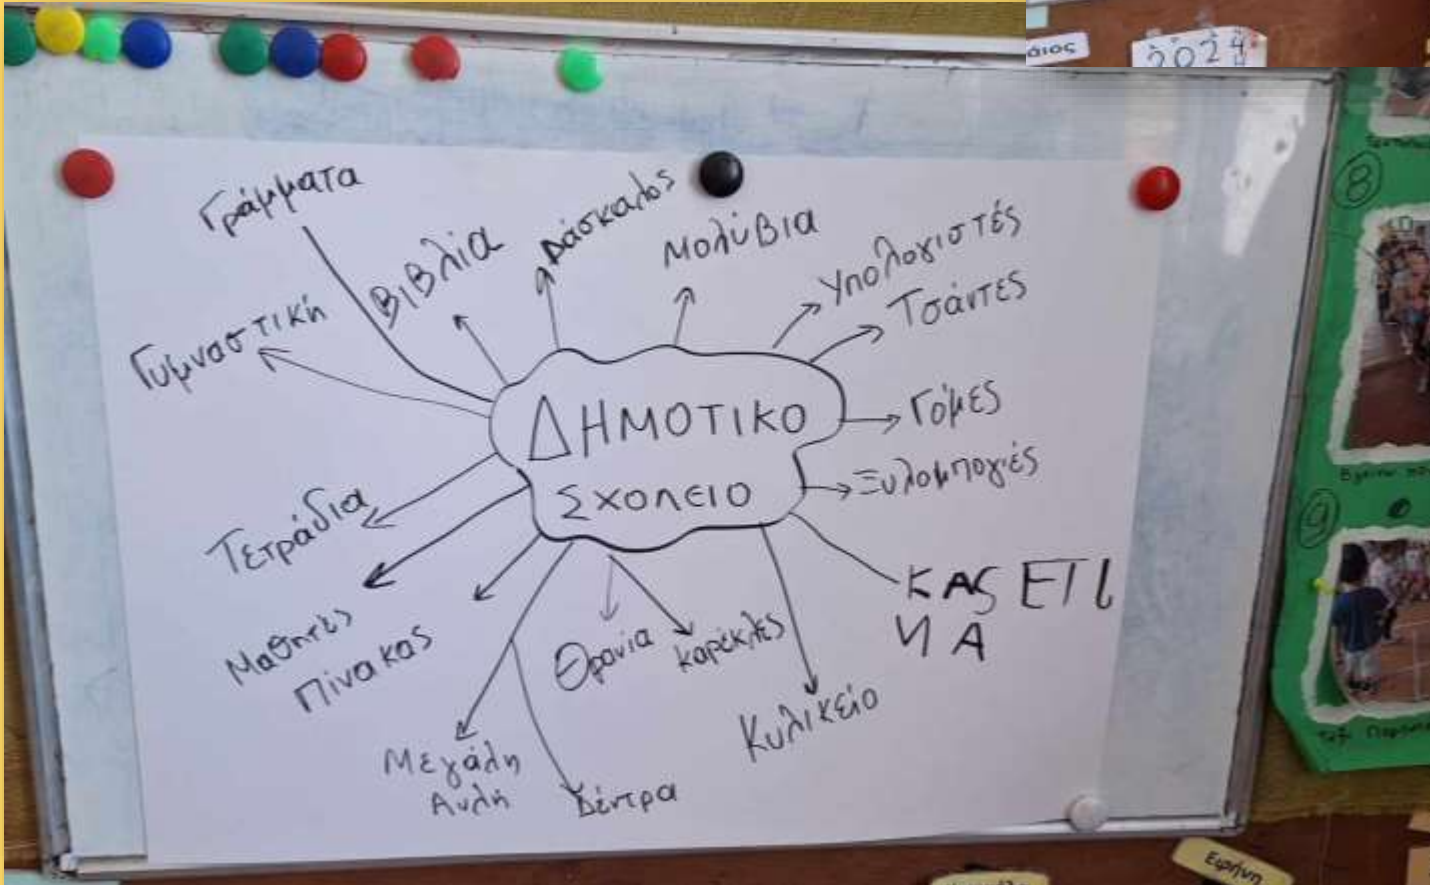 2024
Γράμματα
Βιβλία
Δάσκαλος
Μολύβια
Υπολογιστές
Τσάντες
Γυμναστική
Γόμες
ΔΗΜΟΤΙΚΟ
ΣΧΟΛΕΙΟ
Ξυλομπογιές
Τετράδια
ΚΑΣΕΤΙ
ΝΑ
Μαθητές
Πίνακας
Θρανία
καρέκλες
Κυλικείο
Μεγάλη
Αυλή
Δέντρα
8
9
Ειρήνη